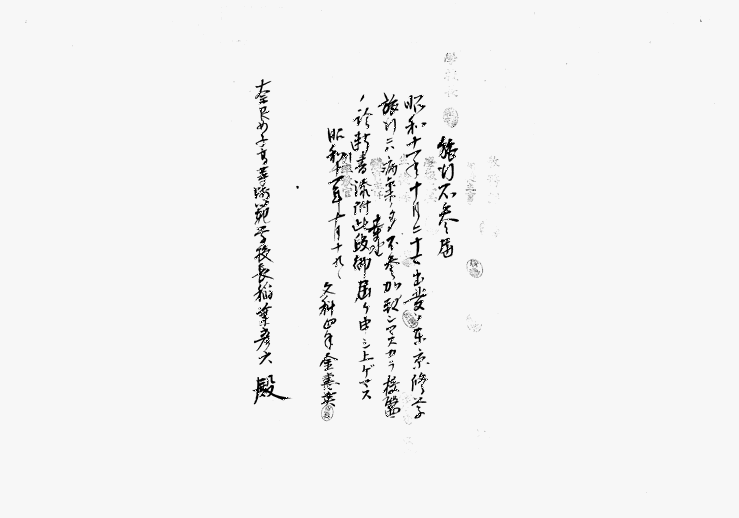 旅行不参届
昭和十一年十月二十七日出発東京修学
旅行ニハ病気ノタメ不参加致シマスカラ校医
ノ診断書添附此段御届ケ申シ上ゲマス
昭和十一年十月十九日
文科四年 金憙英
奈良女子高等師範学校長稲葉彦六殿